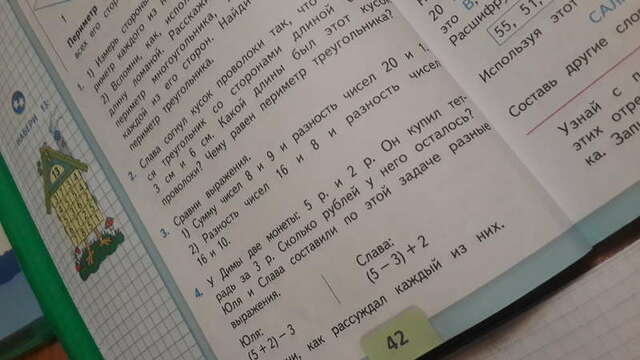 Периметр
всех его стор
1. 1) Измерь стороны
риметр каждого из н
2) Вспомни, как, испол
длину ломаной. Расскаж
периметр многоугольника
каждой из его сторон. Найди
периметр треугольника.
2. Слава согнул кусок проволоки так, что
ся треугольник со сторонами длиной
3 см и 6 см. Какой длины был этот кусо
проволоки? Чему равен периметр треугольника?
3. Сравни выражения.
1) Сумму чисел 8 и 9 и разность чисел 20 и 1.
2) Разность чисел 16 и 8 и разность чисел
16 и 10.
4. У Димы две монеты: 5 р. и 2 р. Он купил тет-
радь за 3 р. Сколько рублей у него осталось?
Юля и Слава составили по этой задаче разные
выражения.
Юля:
(5 + 2) – 3
Слава:
(5 – 3) + 2
ни, как рассуждал каждый из них.
42
НАБЕРИ
20
это
Расшифр
55, 51,
Используя этот
САЛ
Составь другие сло
Узнай с
этих отрез
ка. Запи